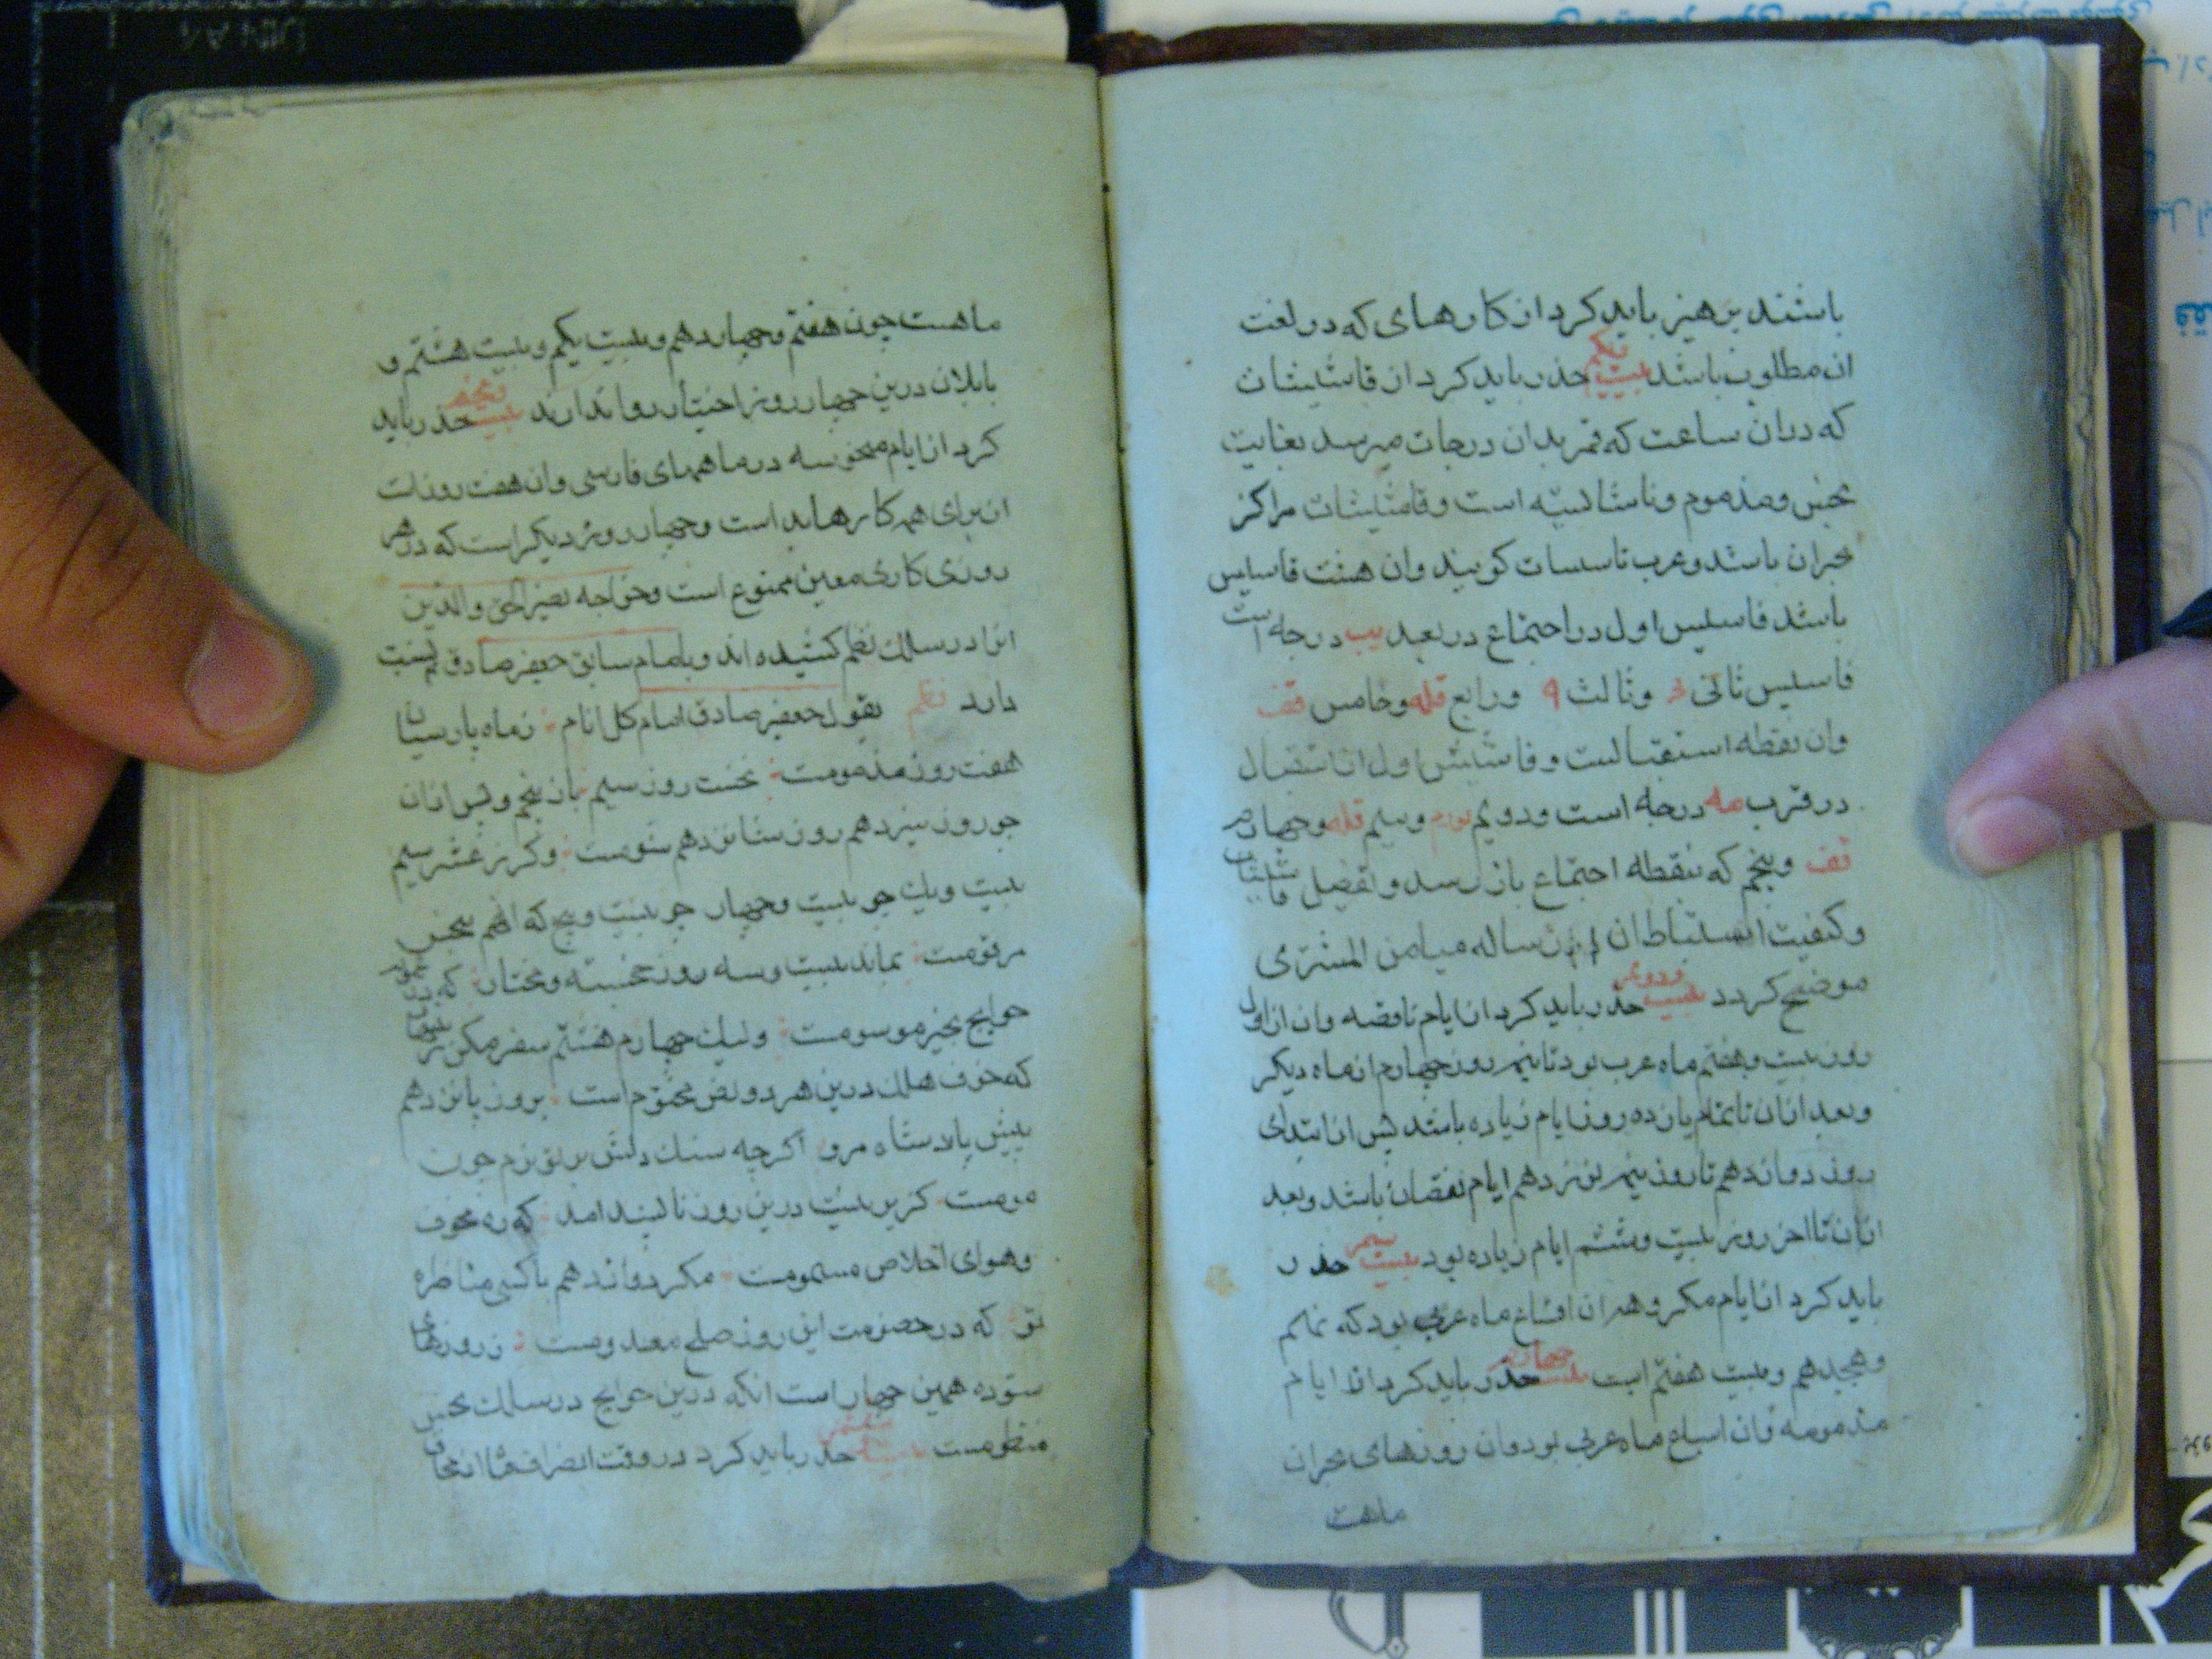 باشند پرهیز باید کرد از کارهای که در لغت
ان مطلوب باشد بیست ویکم حذر باید کرد از فاشیشات
که دران ساعت که قمر بدان درجات میرسد بغایت
نحس ومذموم وناشایسته است و فاشیشات مراکز
بحران باشد وعرب تاسسات کویند وان هشت فاسیس
باشد فاسیس اول در اجتماع در بعد یب درجه است
فاسیس ثانی وثالث ورابع قله وخامس قف
وان نقطه استقبالست وفاشیش اول از استقبال
در قرب مه درجه است ودویم وسیم قله وچهارم
قف وپنجم که بنقطه اجتماع باز رسد وتفصیل فاشیشات
وکیفیت استنباط ان از رساله میامن المشتری
موضح کردد بیست ودویم حذر باید کرد از ایام ناقصه وان از اول
روز بیست وهفتم ماه عرب بود تا نیم روز چهارم از ماه دیکر
وبعد ازان تا تمام یازده روز ایام زیاده باشد پس از ابتدای
روز دوازدهم تا روز نیم نوزدهم ایام نقصان باشد وبعد
ازان تا اخر روز بیست وششم ایام زیاده بود بیست سیم حذر
باید کرد از ایام مکروهه ان اتساع ماه عربی بود که نهم
وهجیدهم وبیست هفتم است بیست چهارم حذر باید کرد از ایام
مذمومه وان اسباع ماه عربی بود وان روزهای بحران
ماهست
ماهست چون هفتم وچهاردهم وبیست یکم وبیست هشتم و
بابلان درین چهار روز اختیار روا ندارند بیست پنجم حذر باید
کرد از ایام منحوسه در ماههای فارسی وان هفت روزست
ان برای همه کارها بد است وچهار روز دیکر است که در هر
روزی کاری معین ممنوع است وخواجه نصیر الحق والدین
انرا در سلک نظم کشیده اند و بامام سابق جعفر صادق نسبت
دارد نظم بقول جعفر صادق امام کل انام ز ماه پارسیان
هفت روز مذمومست نخست روز سیم باز پنجم وپس ازان
چو روز سیزدهم روز شانزدهم شومست وکر ز عشر سیم
بیست ویک چو بیست وچهار چو بیست وپنج که انهم بنحس
مرقومست بماند بیست وسه روز خجسته ومختار که در
حوایج بخیر موسومست ولیک چهارم هشتم سفر مکن
که خوف هلک درین هر دو نص محتوم است بروز پانزدهم
پیش پادشاه مرو اکرچه سنک دلش بر تو نرم چون
مومست کریز نیست درین روز ناپسند امد که ره مخوف
وهوای خلاص مسمومست مکر دوازدهم باکسی مناظره
تو که در خصومت این روز صلح معدومست ز روزهای
ستوده همین چهار است انکه درین حوایج در سلک نحس
منظومست بیست ششم حذر باید کرد در وقت انصراف